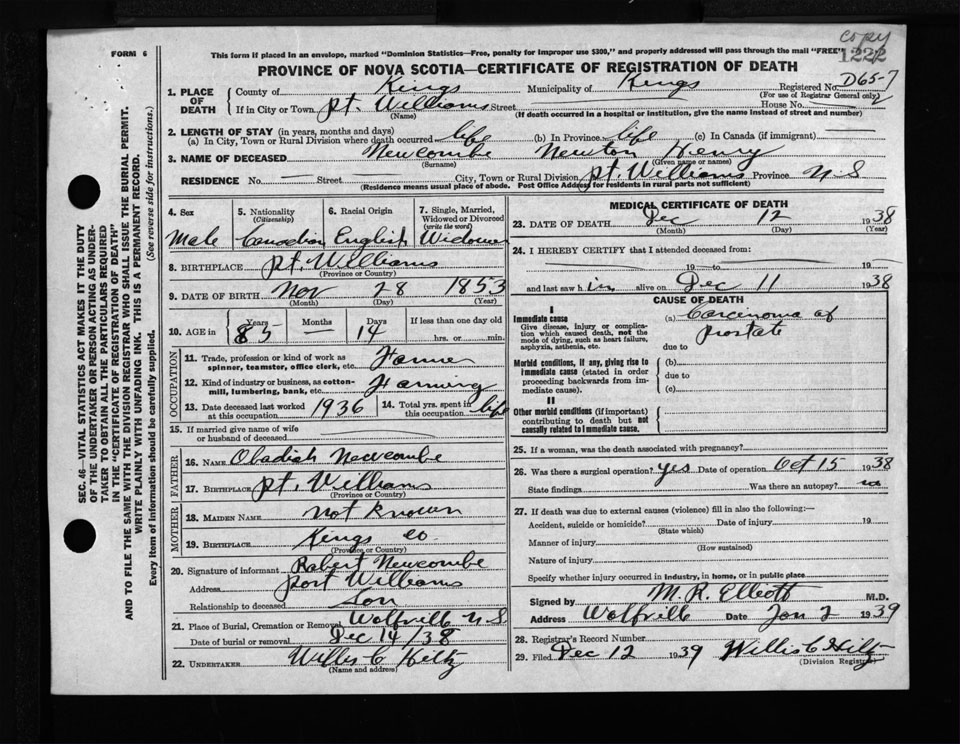 copy
1222
FORM 6
This form if placed in an envelope, marked "Dominion Statistics—Free, penalty for improper use $300," and properly addressed will pass through the mail "FREE"
PROVINCE OF NOVA SCOTIA—CERTIFICATE OF REGISTRATION OF DEATH
1. PLACE OF DEATH County of Kings Municipality of Kings Registered No. D65-7
(For use of Registrar General only)
If in City or Town Pt. Williams Street House No.
(Name) (If death occurred in a hospital or institution, give the name instead of street and number)
2. LENGTH OF STAY (in years, months and days)
(a) In City, Town or Rural Division where death occurred life (b) In Province life (c) In Canada (if immigrant)
3. NAME OF DECEASED Newcombe Newton Henry
(Surname) (Given name or names)
RESIDENCE No. Street City, Town or Rural Division Pt. Williams Province N.S
(Residence means usual place of abode. Post Office Address for residents in rural parts not sufficient)
4. Sex 5. Nationality (Citizenship) 6. Racial Origin 7. Single, Married, Widowed or Divorced (write the word)
Male Canadian English Widower
8. BIRTHPLACE Pt. Williams
(Province or Country)
9. DATE OF BIRTH Nov 28 1853
(Month) (Day) (Year)
10. AGE in Years Months Days If less than one day old
85 — 14 hrs. or min.
OCCUPATION
11. Trade, profession or kind of work as spinner, teamster, office clerk, etc. Farmer
12. Kind of industry or business, as cotton-mill, lumbering, bank, etc. Farming
13. Date deceased last worked at this occupation 1936 14. Total yrs. spent in this occupation life
15. If married give name of wife or husband of deceased
FATHER
16. NAME Obadiah Newcombe
17. BIRTHPLACE Pt. Williams
(Province or Country)
MOTHER
18. MAIDEN NAME not known
19. BIRTHPLACE Kings co.
(Province or Country)
20. Signature of informant Robert Newcombe
Address Port Williams
Relationship to deceased Son
21. Place of Burial, Cremation or Removal Wolfville N.S
Date of burial or removal Dec 14/38
22. UNDERTAKER Willis C Hiltz
(Name and address)
MEDICAL CERTIFICATE OF DEATH
23. DATE OF DEATH Dec 12 1938
(Month) (Day) (Year)
24. I HEREBY CERTIFY that I attended deceased from:
19 to 19
and last saw him alive on Dec 11 1938
CAUSE OF DEATH
I
Immediate cause (a) Carcenoma of prostate
Give disease, injury or complication which caused death, not the mode of dying, such as heart failure, asphyxia, asthenia, etc.
due to
Morbid conditions, if any, giving rise to immediate cause (stated in order proceeding backwards from immediate cause). (b)
due to
(c)
II
Other morbid conditions (if important) contributing to death but not causally related to immediate cause.
25. If a woman, was the death associated with pregnancy?
26. Was there a surgical operation? yes Date of operation Oct 15 1938
State findings Was there an autopsy? no
27. If death was due to external causes (violence) fill in also the following:—
Accident, suicide or homicide? Date of injury 19
(State which)
Manner of injury
(How sustained)
Nature of injury
Specify whether injury occurred in industry, in home, or in public place
Signed by M.R. Elliott M.D.
Address Wolfville Date Jan 2 1939
28. Registrar's Record Number
29. Filed Dec 12 1939 Willis C Hiltz
(Division Registrar)
SEC. 46—VITAL STATISTICS ACT MAKES IT THE DUTY
OF THE UNDERTAKER OR PERSON ACTING AS UNDER-
TAKER TO OBTAIN ALL THE PARTICULARS REQUIRED
IN THE "CERTIFICATE OF REGISTRATION OF DEATH"
AND TO FILE THE SAME WITH THE DIVISION REGISTRAR WHO SHALL ISSUE THE BURIAL PERMIT.
WRITE PLAINLY WITH UNFADING INK. THIS IS A PERMANENT RECORD.
Every item of information should be carefully supplied. (See reverse side for instructions.)